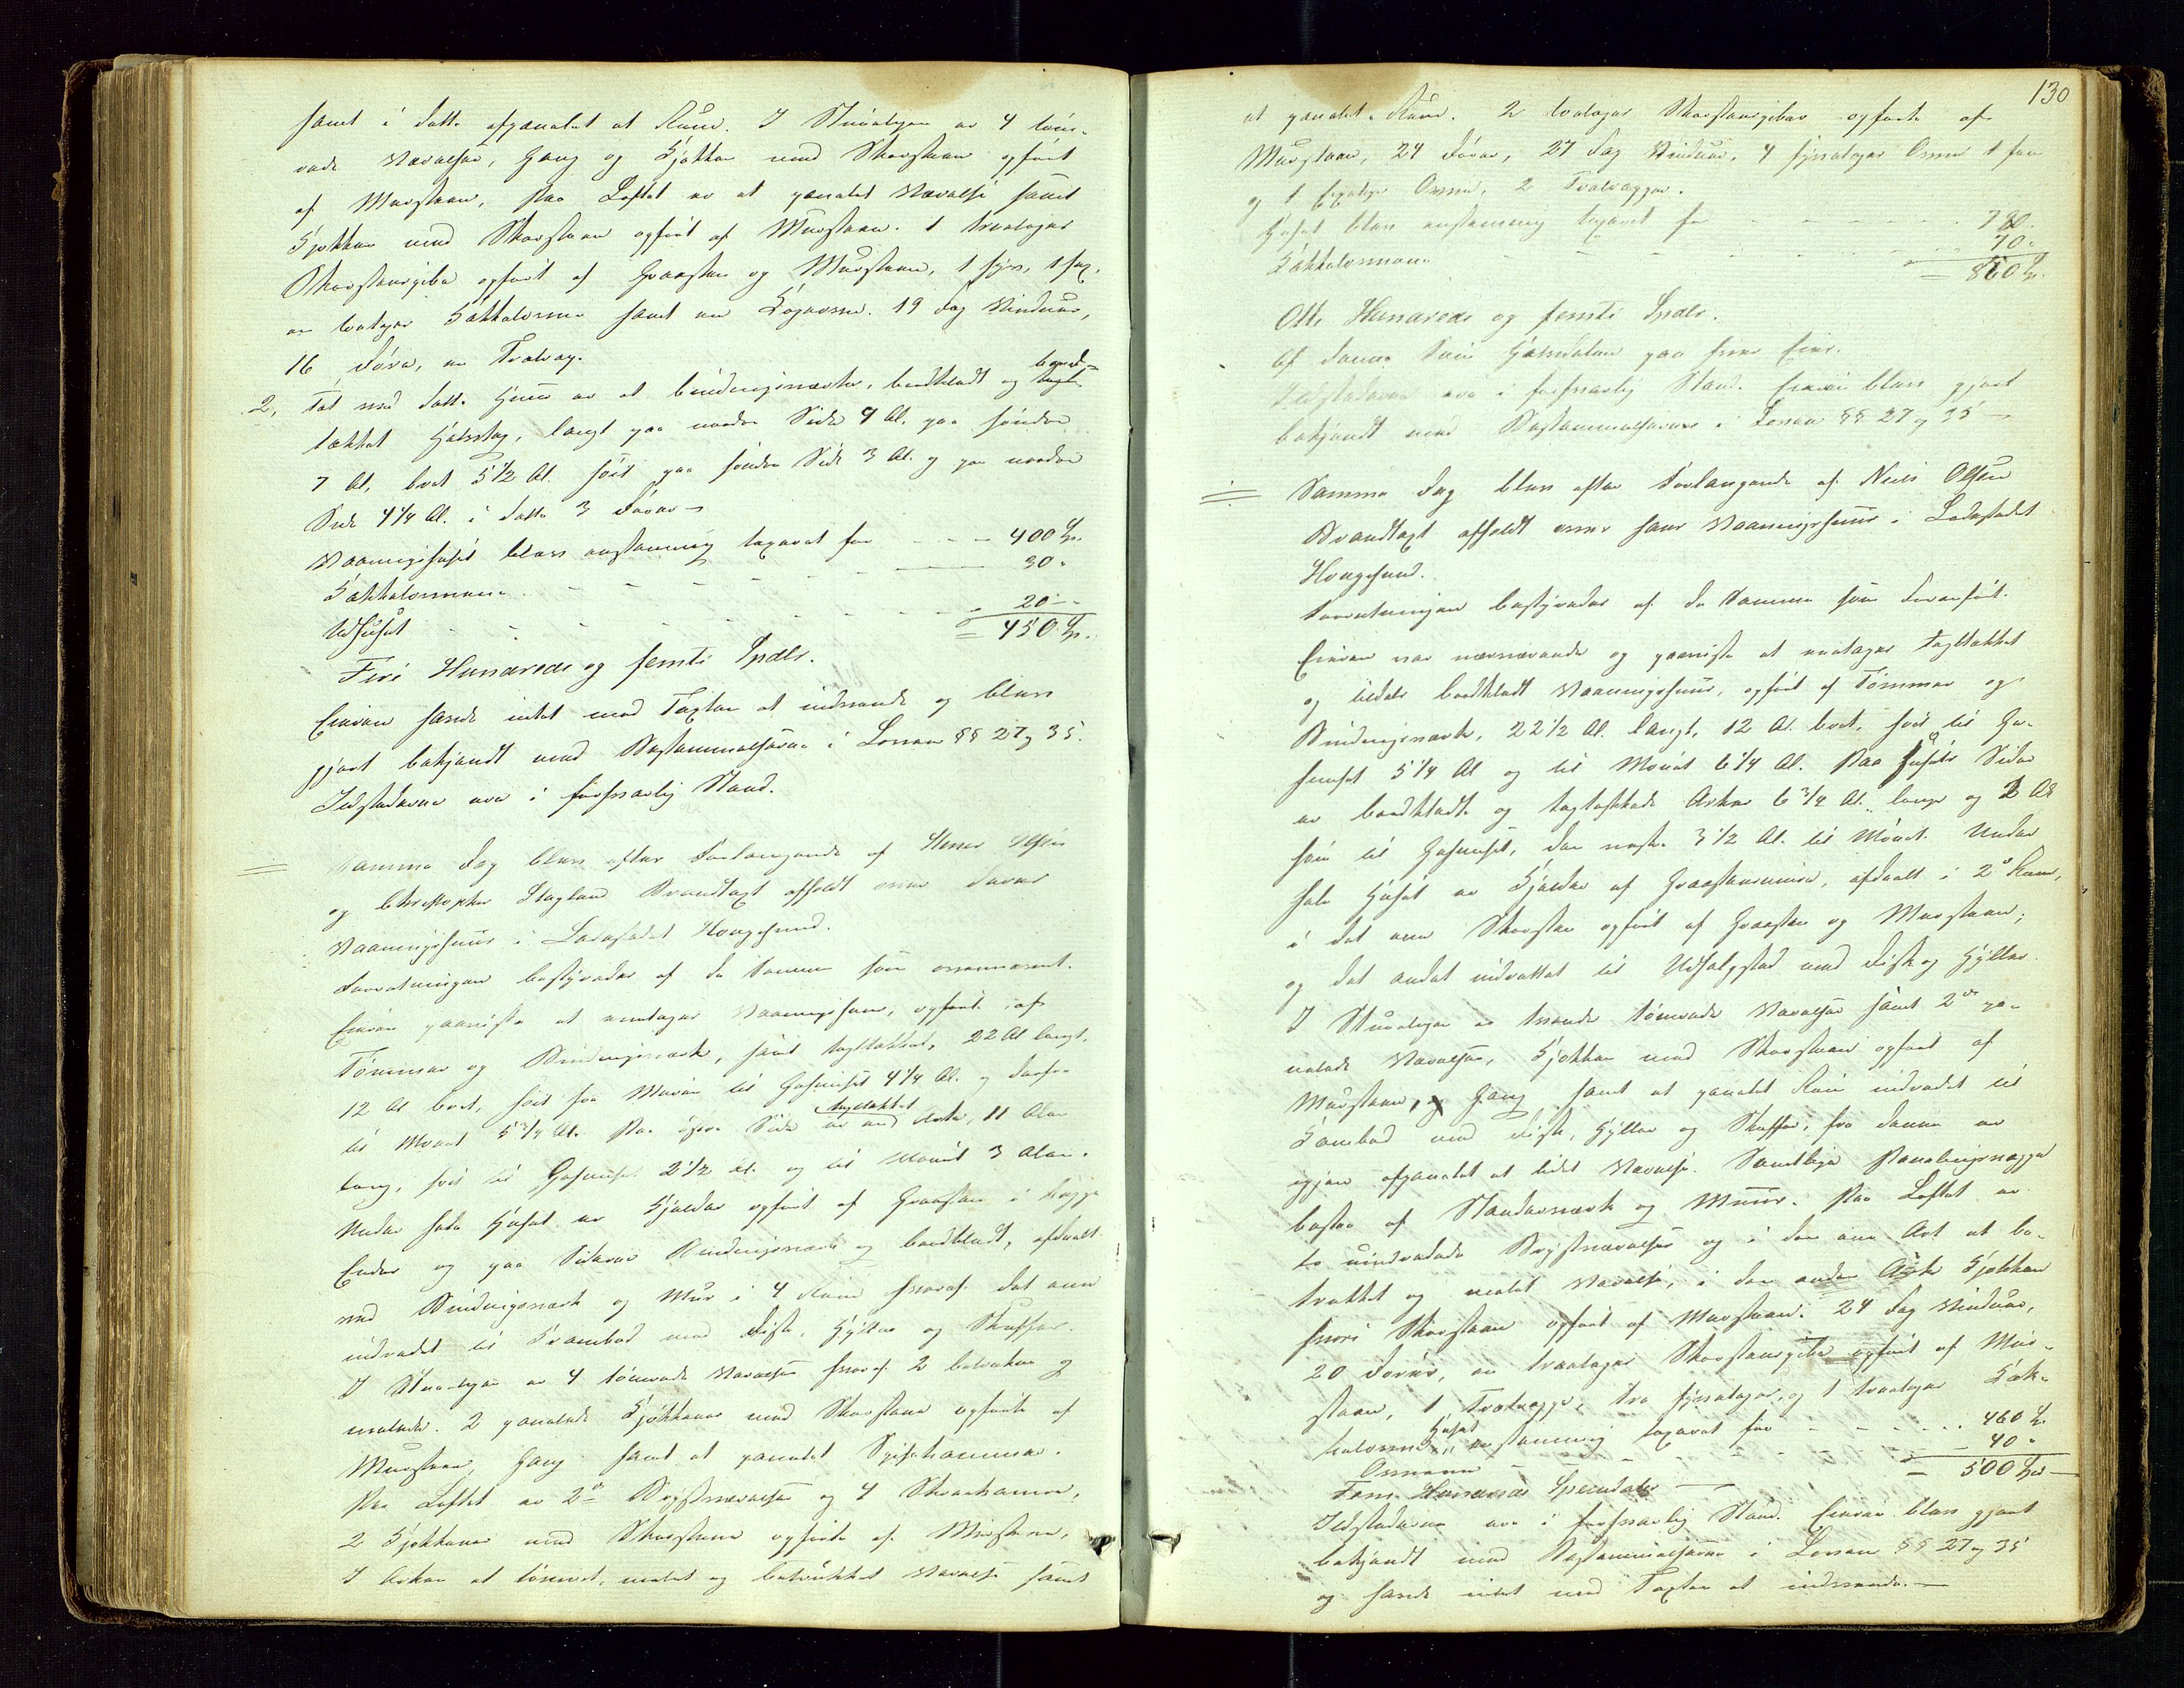 samt i dette afpanelet et Rum. I Stueetagen er 4 tøm-
rede Værelser, Gang og Kjøkken med Skorsteen opført
af Muursteen, paa Loftet er et panelet Værelse samt
Kjøkken med Skorsteen opført af Muursteen. 1 treetages
Skorsteenspibe opført af Graasteen og Muursteen, 1 fyr,
en toetages Kakkelovne samt en Kogeovn. 19 Fag Vinduer,
16 Døre, en Trætrap.
2, Tæt ved dette Huus er et bindingsværks, bordklædt og bord-
tækket Huusslag, langt paa nordre Side 9 Al. paa søndre
7 Al. bredt 5 1/2 Al. høit paa søndre Side 3 Al. og paa nordre
Side 4 1/4 Al. i dette 3 Dører
Vaaningshuset blev enstemmig taxeret for - - - 400 Sp.
Kakkelovnene - - - 30 "
Udhuset - - - 20 "
= 450 Sp.
Fire Hundrede og femti Spdlr.
Eieren havde intet mod Taxten at indvende og blev
gjort bekjendt med Bestemmelserne i Loven §§ 27 og 35.
Ildstederne ere i forsvarlig Stand.
Samme Dag blev efter Forlangende af Olsen
og Christopher Stagland Brandtaxt afholdt over deres
Vaaningshuus i Ladestedet Haugesund.
Forretningen bestyredes af de Samme som ovennævnt.
Eieren paaviste et eenetages Vaaningshuus, opført af
Tømmer og Bindingsværk, samt tagltækket, 22 Al langt,
12 Al bredt, høit fra Muren til Gesimset 4 1/4 Al. og derfra
til Mønet 5 3/4 Al. Paa øvre Side er en tagltækket Ark, 11 Alen
lang, høi til Gesimset 2 1/2 Al. og til Mønet 3 Alen.
Under hele Huset er Kjelder opført af Graasteen i begge
Ender og paa Siderne Bindingsværk og bordklædt, afdeelt
med Bindingsværk og Mur i 4 Rum hvoraf det ene
indredet til Krambod med Disk, Hylder og Skuffer.
I Stueetagen er 4 tømrede Værelser hvoraf 2 betrukne og
malede. 2 panelede Kjøkkener med Skorstene opførte af
Muursteen, Gang samt et panelet Spisekammer.
Paa Loftet er 2de Kvistværelser og 4 Skraakamre,
2 Kjøkkener med Skorstene opførte af Muursteen,
I Arken et tømret, malet og betrukket Værelse samt
130
et panelet Rum. 2 toetages Skorsteenspiber opførte af
Muursteen, 24 Dører, 27 Fag Vinduer, 4 fyretages Ovne 1 fem
og 1 Etages Ovne, 2 Trætrapper.
Huset blev enstemmig taxeret for - - - 780.
Kakkelovnene - - - 70 "
= 850 Sp.
Otte Hundrede og femti Spdlr.
Af denne Sum Halvdelen paa hver Eier.
Ildstederne ere i forsvarlig Stand. Eieren blev gjort
bekjendt med Bestemmelserne i Loven §§ 27 og 35
Samme Dag blev efter Forlangende af Niels Olsen
Brandtaxt afholdt over hans Vaaningshuus i Ladestedet
Haugesund.
Forretningen bestyredes af de Samme som foranført.
Eieren var nærværende og paaviste et eenetages tagltækket
og tildels bordklædt Vaaningshuus, opført af Tømmer og
Bindingsværk, 22 1/2 Al. langt, 12 Al. bredt, høit til Ge-
simset 5 1/4 Al og til Mønet 6 1/4 Al. Paa Husets Sider
er bordklædte og tagltækkede Arker 6 3/4 Al. lange og 2 Al
høie til Gesimset, den vestre 3 1/2 Al. til Mønet. Under
hele Huset er Kjelder af Graasteensmuur, afdeelt i 2de Rum,
i det ene Skorsteen opført af Graasteen og Muursteen,
og det andet indrettet til Udsalgssted med Disk og Hylder.
I Stueetagen er trende tømrede Værelser samt 2de pa-
nelede Værelser, Kjøkken med Skorsteen opført af
Muursteen, Gang samt et panelet Rum indredet til
Krambod med Disk, Hylder og Skuffer, fra denne er
igjen afpanelet et lidet Værelse. Samtlige Panelingsvægge
bestaa af Standerværk og Muur. Paa Loftet er
to uindredede Kvistværelser og i den ene Ark et be-
trukket og malet Værelse, i den anden Ark Kjøkken
hvori Skorsteen opført af Muursteen. 24 Fag Vinduer,
20 Dører, en treetages Skorsteenspibe opført af Muur-
steen, 1 Trætrappe, tre fyretages og 1 treetages Kak-
kelovne. Huset enstemmig taxeret for - - - 460 Sp.
Ovnene - - - 40 "
= 500 Sp.
Fem Hundrede Speciedaler
Ildstederne ere i forsvarlig Stand. Eieren blev gjort
bekjendt med Bestemmelserne i Loven §§ 27 og 35
og havde intet mod Taxten at indvende.